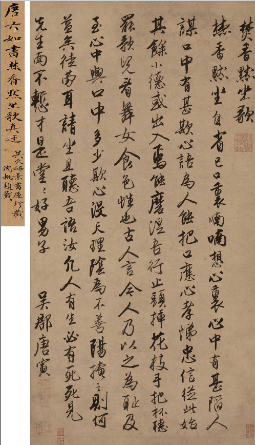 焚香默坐歌
焚香默坐自省己口裏喃喃想心裏心中有甚陷人
謀口中有甚欺心語為人能把口應心孝悌忠信從此始
其餘小德或出入焉能磨涅吾行止頭插花枝手把杯聽
罷歌兒看舞女食色性也古人言今人乃以之為恥及
至心中與口中多少欺心沒天理陰為不善陽掩之則何
益矣徒勞耳請坐且聽吾語汝凡人有生必有死死見
先生面不慚才是堂堂好男子 吳郡唐寅
唐六如書焚香默坐歌真迹